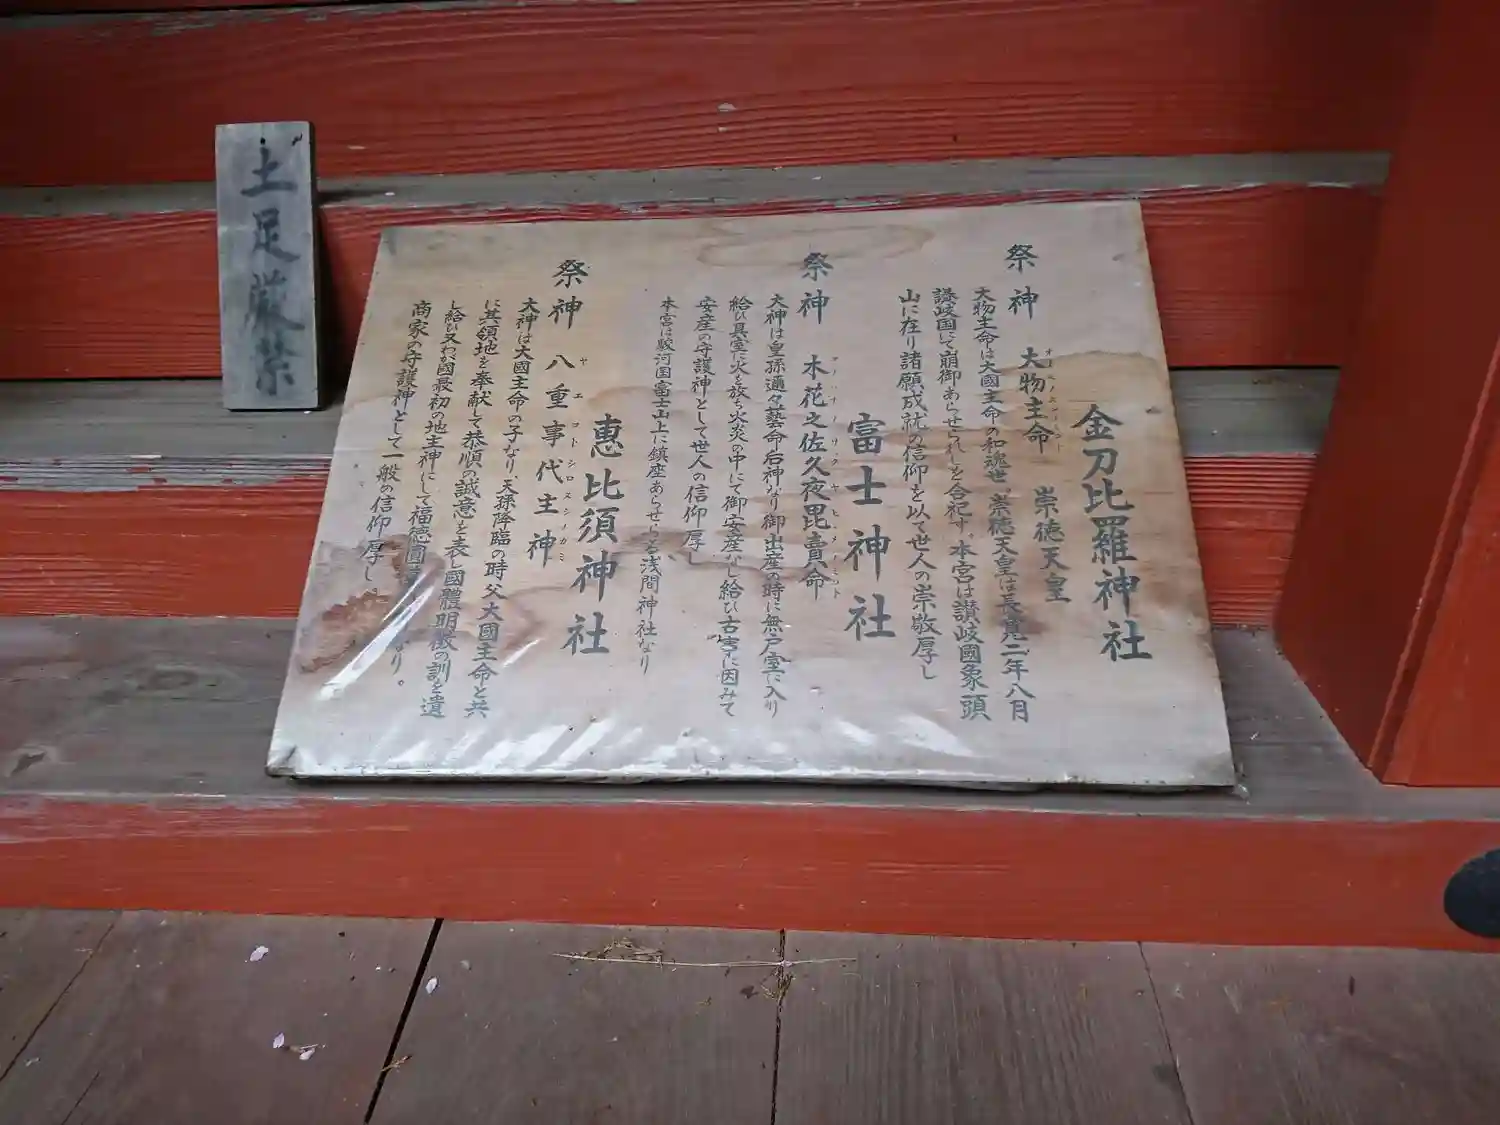 土足厳禁
金刀比羅神社
祭神 大物主命 崇徳天皇
大物主命は大國主命の和魂世、崇徳天皇は長寛二年八月
讃岐国にて崩御あらせられしを合祀す。本宮は讃岐國象頭
山に在り諸願成就の信仰を以て世人の崇敬厚し
富士神社
祭神 木花之佐久夜毘賣命
コノハナノサクヤヒメノミコト
大神は皇孫邇々藝命后神なり御出産の時に無戸室に入り
給ひ具室に火を放ち火炎の中にて御安産なし給ひ古事に因みて
安産の守護神として世人の信仰厚し
本宮は駿河国富士山上に鎮座あらせらる浅間神社なり
恵比須神社
祭神 八重事代主神
ヤエコトシロヌシノカミ
大神は大國主命の子なり、天孫降臨の時父大國主命と共
に其領地を奉献して恭順の誠意を表し國體明徴の訓を遺
し給ひ又わが國最初の地主神にして福徳圓
なり。
商家の守護神として一般の信仰厚し。